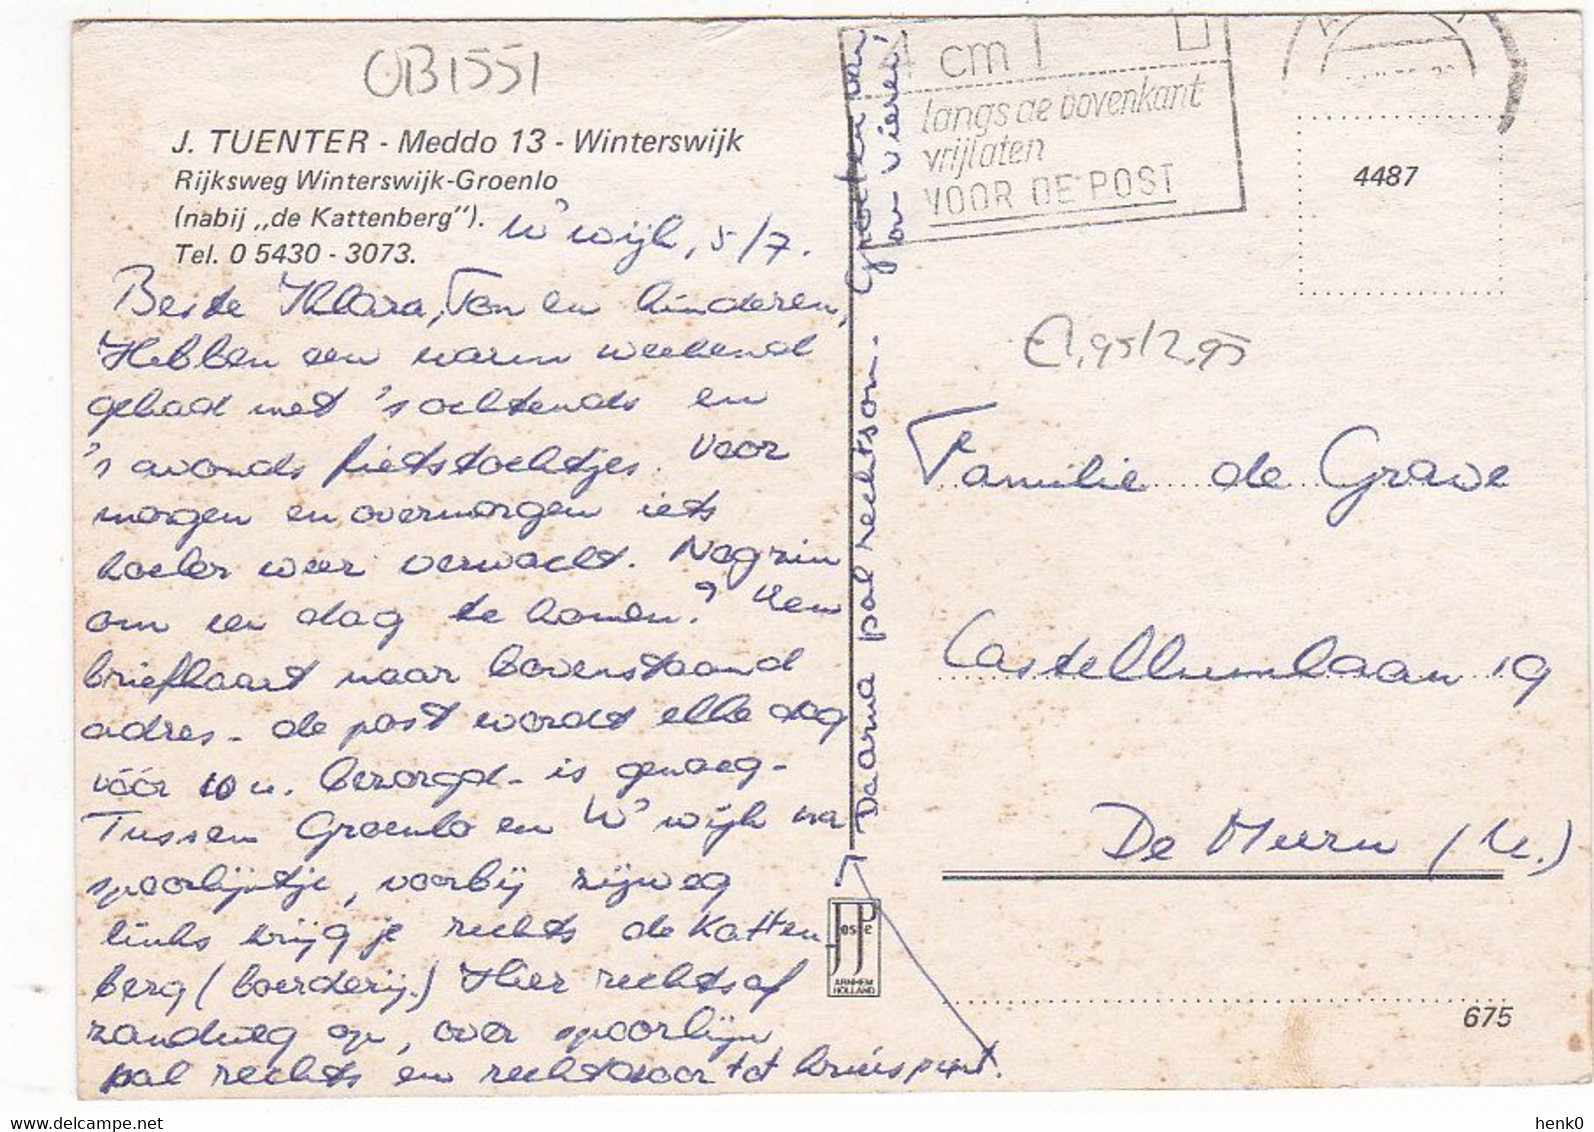 OB1551
J. TUENTER - Meddo 13 - Winterswijk
Rijksweg Winterswijk-Groenlo
(nabij „de Kattenberg").
Tel. 0 5430 - 3073.
W'wijk, 5/7.
Beste Klara, Ton en kinderen,
Hebben een warm weekend
gehad met 's ochtends en
's avonds fietstochtjes. Voor
morgen en overmorgen iets
koeler weer verwacht. Nog zin
om een dag te komen? Een
briefkaart naar bovenstaand
adres - de post wordt elke dag
vóór 10 u. bezorgd - is genoeg -
Tussen Groenlo en W'wijk na
spoorlijntje, voorbij zijweg
links krijg je rechts de Katten
berg (boerderij.) Hier rechtsaf
zandweg op, over spoorlijn
pal rechts en rechtdoor tot kruispunt.
Daarna pal rechtson. Groeten van
ons vieren,
4 cm
langs de bovenkant
vrijlaten
VOOR DE POST
4487
€1,95/2,95
Familie de Grave
Castellumlaan 19
De Meern (U.)
JosPe
ARNHEM
HOLLAND
675
www.delcampe.net
henk0